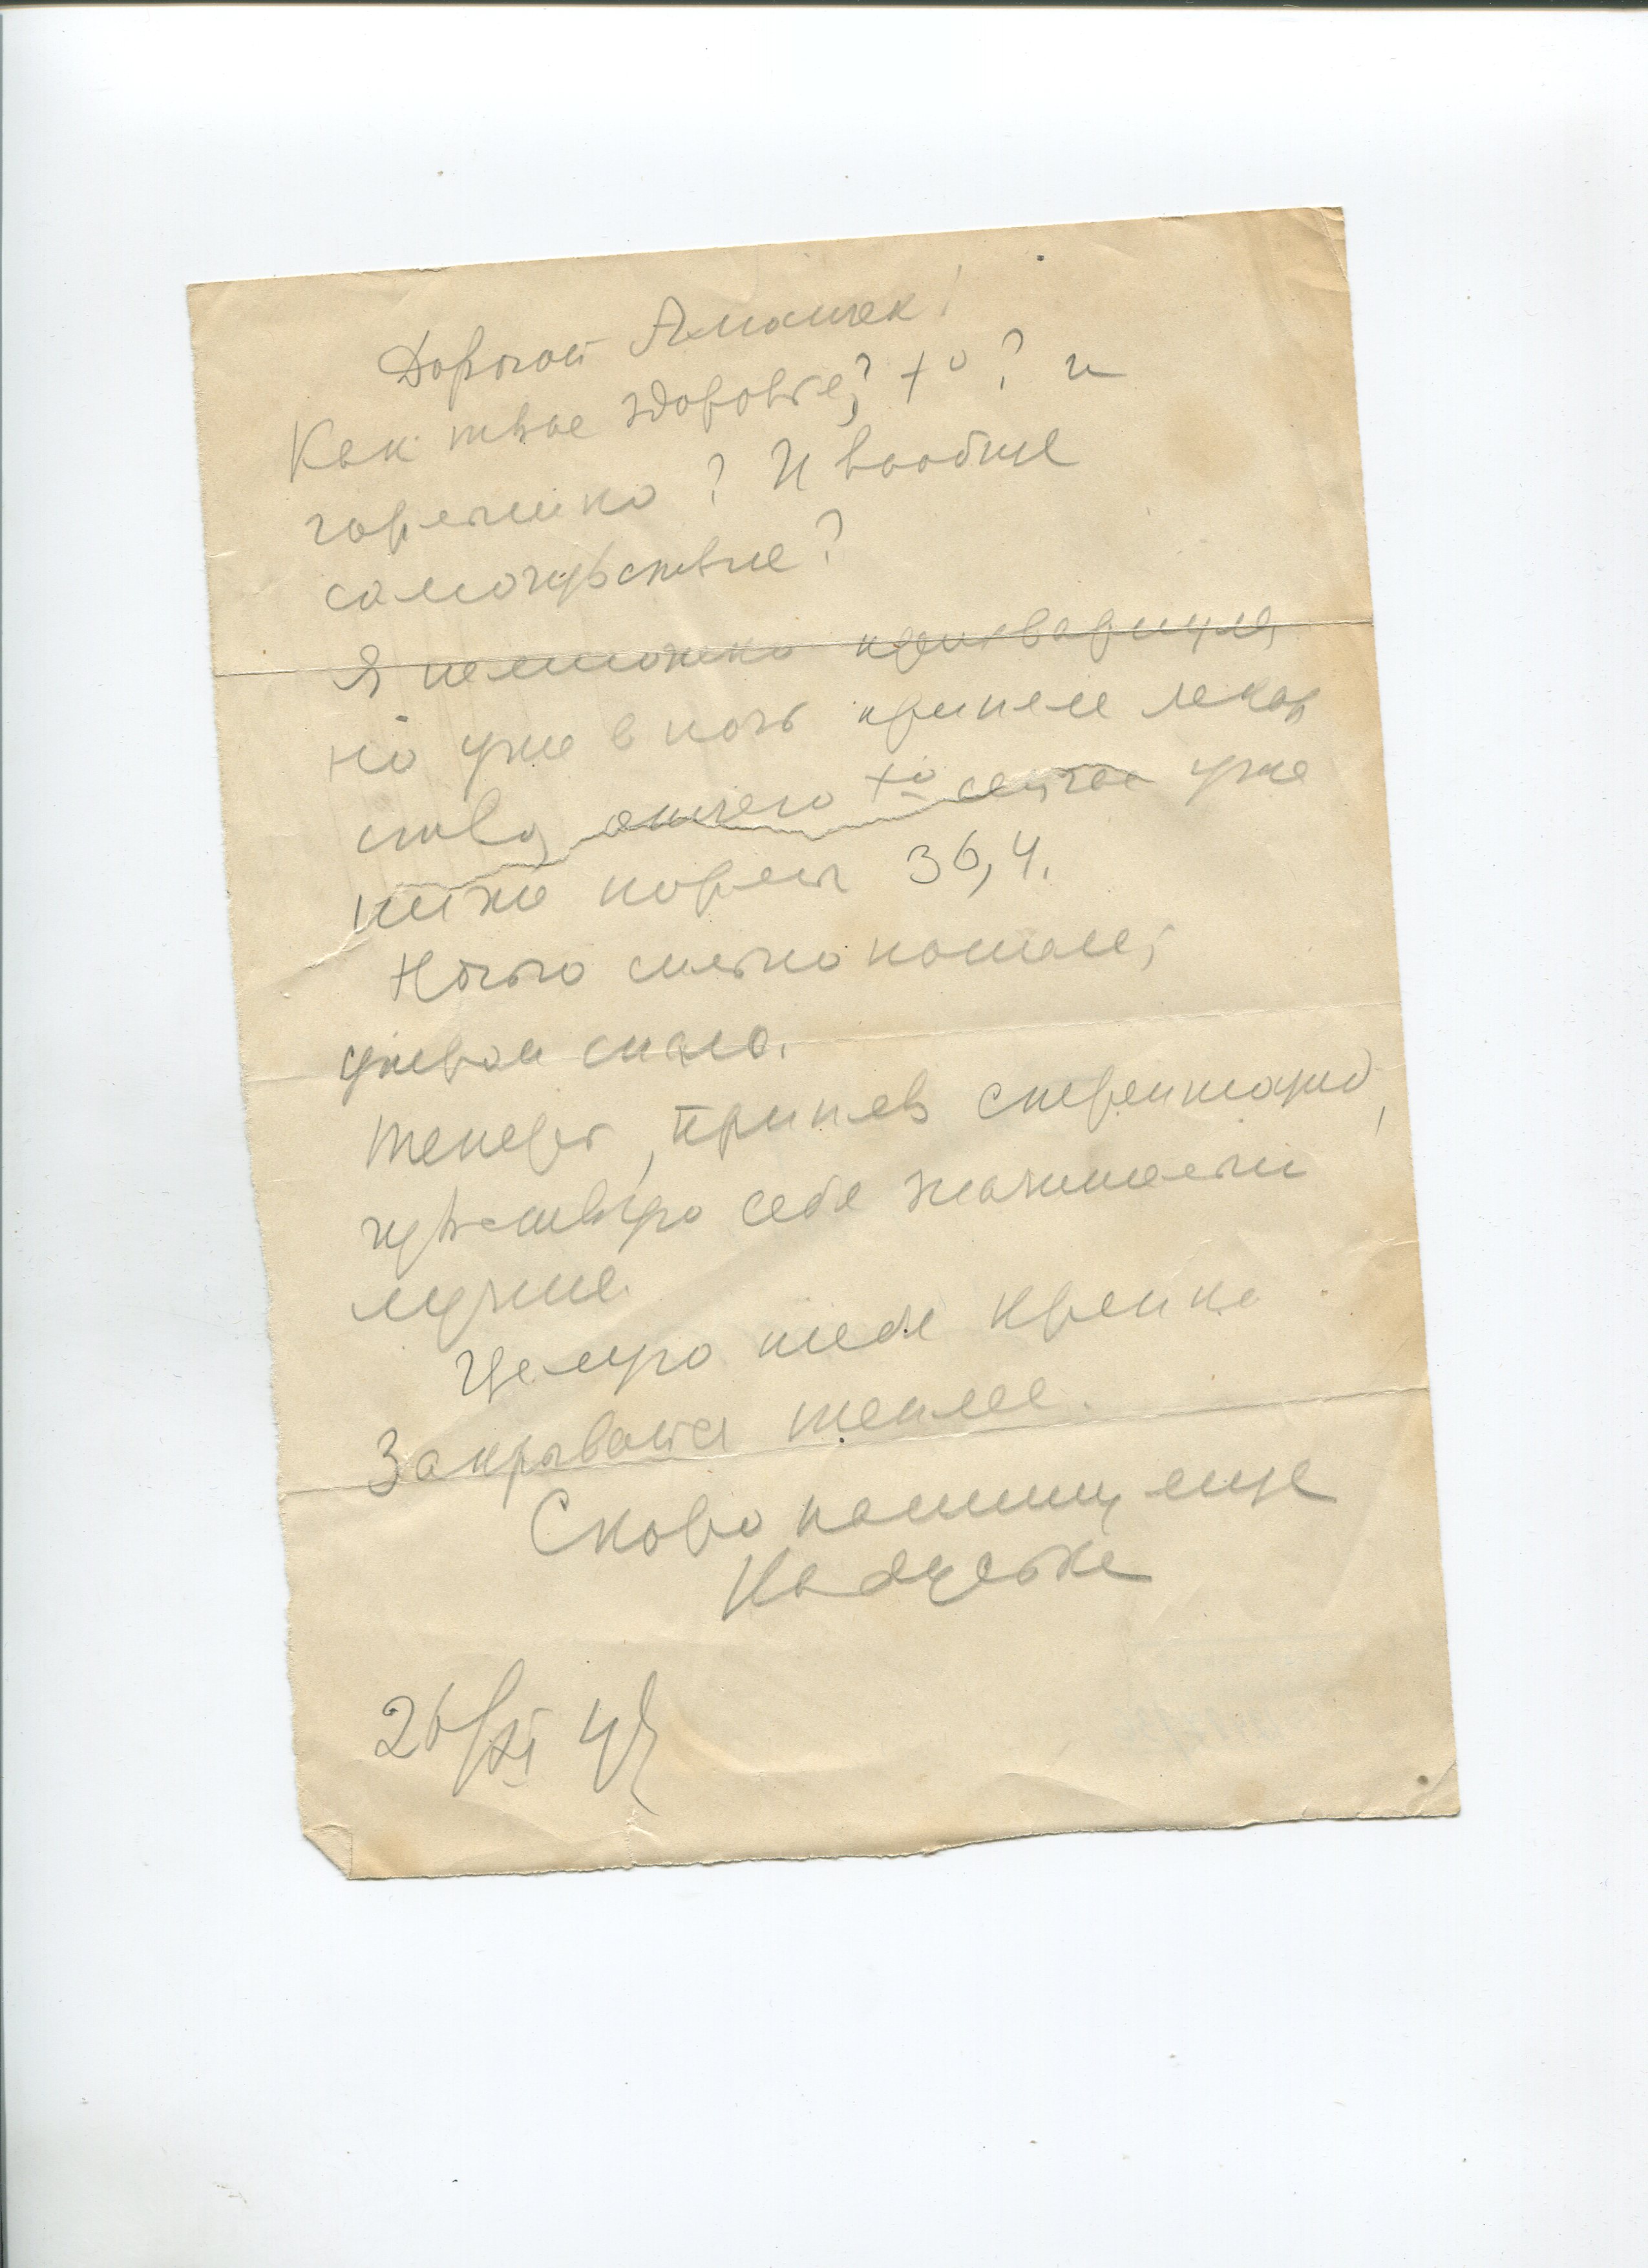 Дорогой Ямашек!
Как твое здоровье, t°? и
горлышко? И вообще
самочувствие?
Я немножко прихварнула
но уже в ночь приняла лекар
ства, отчего t° сейчас уже
ниже нормы 36,4.
Ночью сильно
днем спала.
Теперь, приняв стрептоцид,
чувствую себя значительно
лучше.
Целую тебя крепко
Закрывайся теплее.
Скоро напишу еще
26/XI